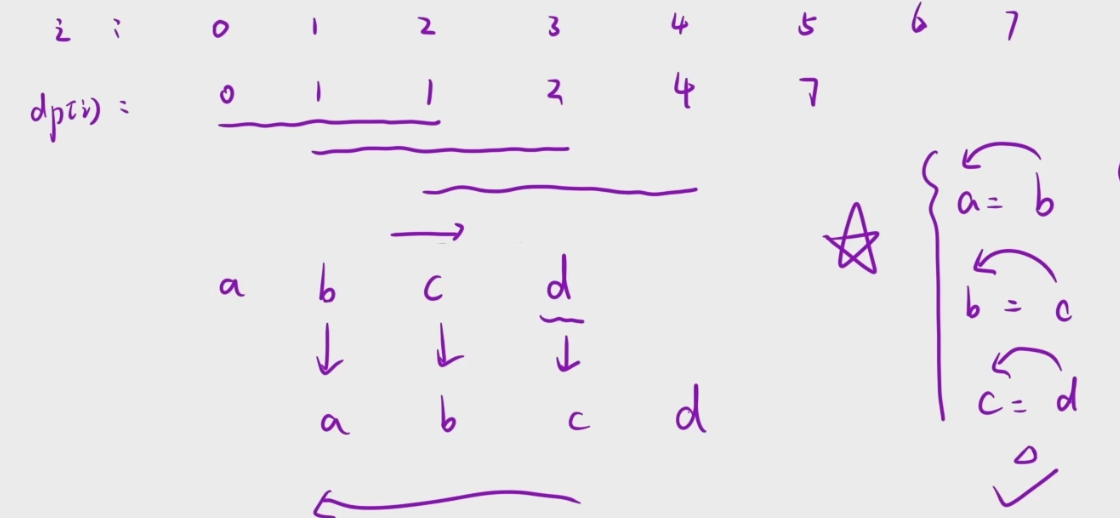 i : 0 1 2 3 4 5 6 7
dp(i) : 0 1 1 2 4 7
a = b
a b c d
b = c
a b c d
c = d